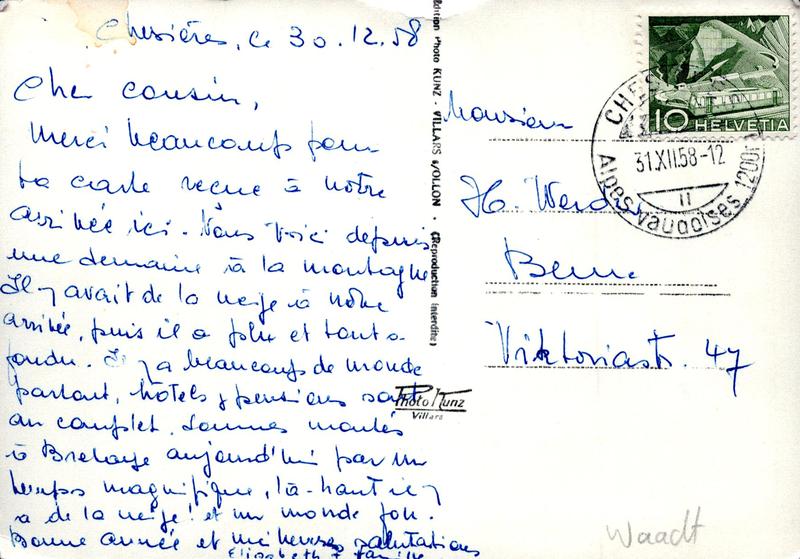 Chesières, ce 30.12.58
Cher cousin,
Merci beaucoup pour
ta carte reçue à notre
arrivée ici. Nous voici depuis
une semaine à la montagne
Il y avait de la neige à notre
arrivée, puis il a plu et tout a
fondu. Il y a beaucoup de monde
partout, hôtels, pensions sont
au complet. Sommes montés
à Bretaye aujourd'hui par un
temps magnifique, là-haut il y
a de la neige! et un monde fou.
Bonne année et meilleures salutations
Elisabeth + famille
Edition Photo KUNZ - VILLARS s/OLLON - (Reproduction interdite)
Photo Kunz
Villars
10 HELVETIA
31.XII.58-12
II
Alpes vaudoises 1200m
Monsieur
H. Werder
Berne
Viktoriastr. 47
Waadt